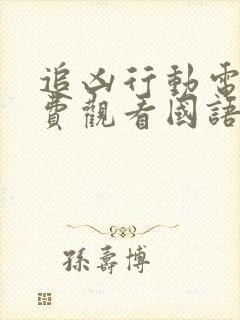 追凶行動電
費觀看國語
孫壽博